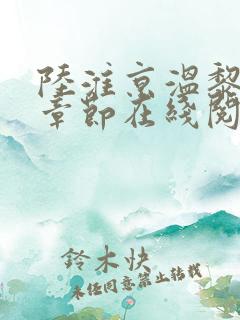 陸淮京溫黎
章節在綫閱
鈴木快
未经同意禁止转载